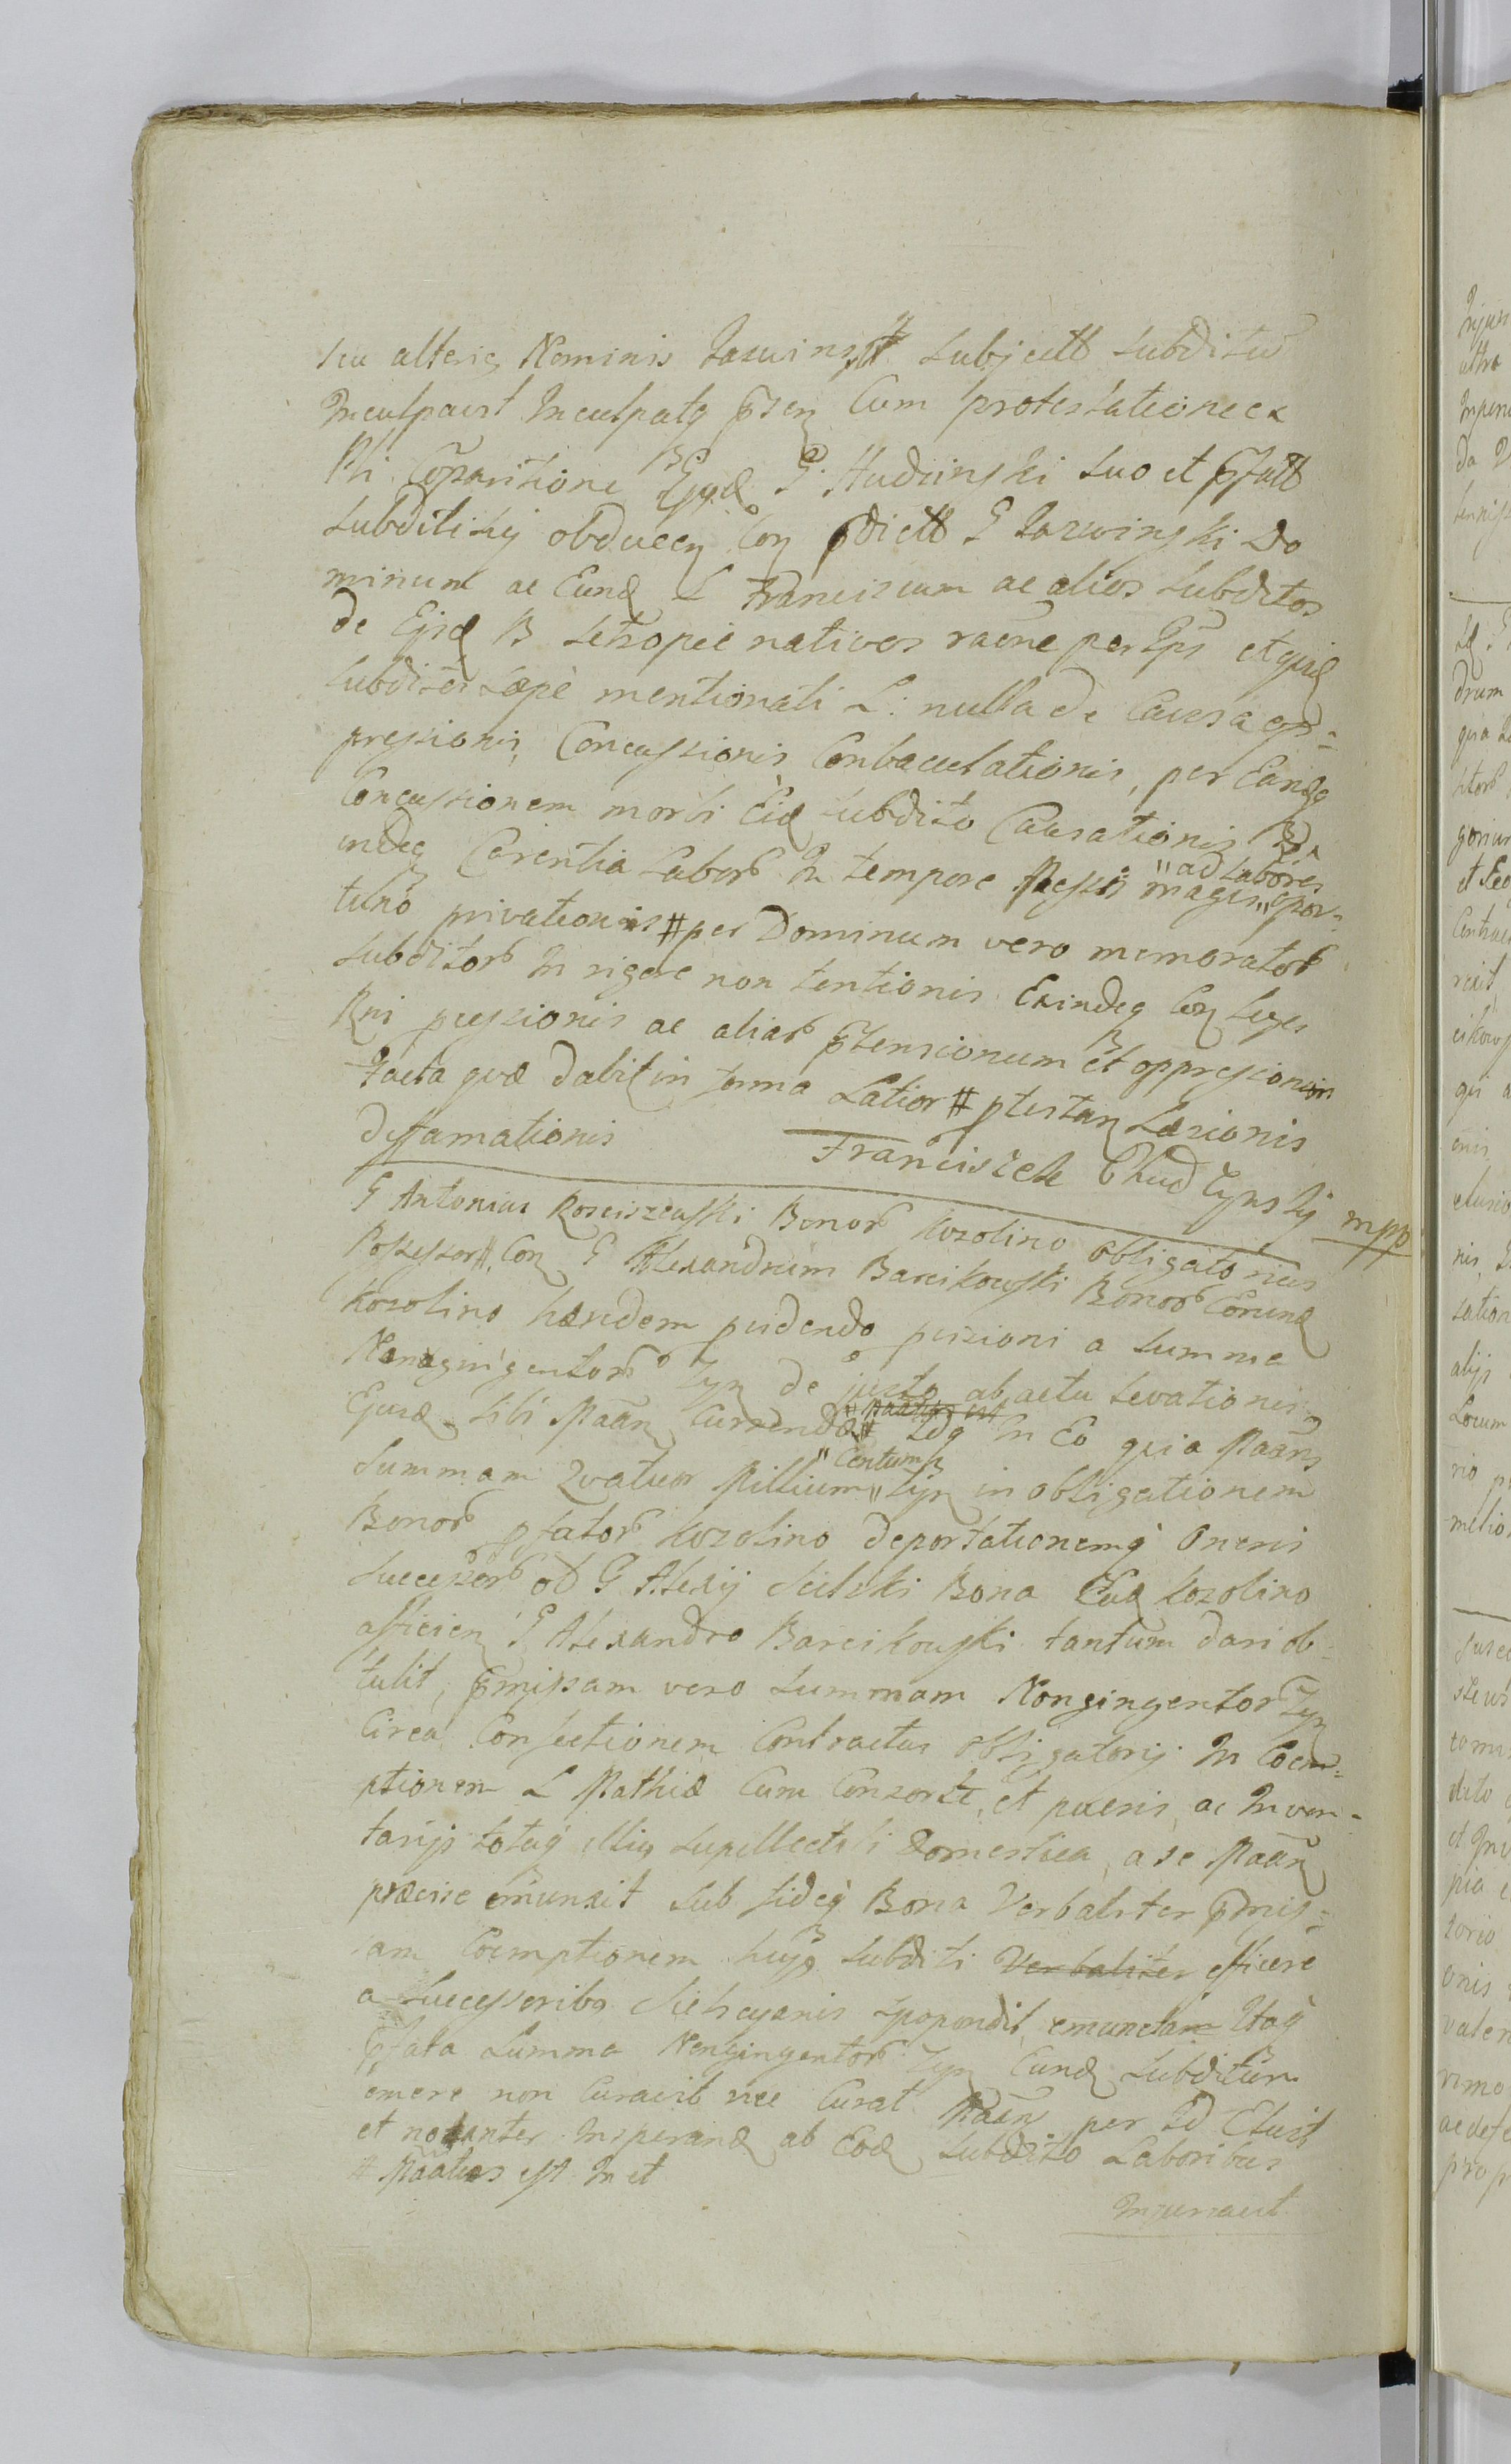 seu alterig Nominis Jarwinskt subjectt subditu
Inculpavit Inculpatq psen Cum protestatione ex
Rli Coparitione Ejqd G. Hudzinski suo et pfatt
subditisq obducen Con pdictt G Jarwinski Do
minum ac Eund L Franciscum ac alios subditos
de Ejsd B Setropie nativos raone per Ips etqud
subditos sæpè mentionati L: nulla de Causa op=
pressionis, Concussionis Conbaculationis, per Eandq
Concussionem morbi Eid subdito Causationis
indeq Carentia Labor In tempore Messis magis " ad Labores oppor=
tuno privationis # per Dominum vero memorator
subditor in rigore non tentionis Exindeq Con Leges
Rni pressionis ac aliar ptensionum et oppressionum
facta qvæ dabit in forma Latior # ptestan Læsionis
deffamationis Franciszek Chudzynsky mpp
G Antonius Rosciszewski Bonor Kozolino obligatorius
Possessor # Con G Alexandrum Barcikowski Bonor Eorund
Kozolino hæredem pvidendo pvisioni a summa
Nonagingentor Zyn de justo ab actu Levationis
Ejusd sibi Maan Currenda # Idq In Eo quia Maans
Summam Qvatuor Millium " Centum Zyn in obligationem
Bonor pfator Kozolino deportationemq Oneris
Successor od G Alexij Sielski Bona Ead Kozolino
afficien G Alexandro Barcikowski tantum dari ob=
tulit, pmissam vero Summam Nongingentor Zyn
Circa Confectionem Contractus obligatorij In Coem=
ptionem L Mathiæ Cum Consorte, et pueris, ac Inven=
tarijs totaq illiq supellectili Domestica, a se Maan
præcise emunxit sub fideq Bona Verbaliter pmis=
sam Coemptionem hujq subditi Verbaliter efficere
a Successoribq Sielscyanis spopondit, emunctam Itaq
pfata Summa Nongingentor Zyn Eund Subditum
emere non Curavit nec Curat Maan per Id Elusit
et notanter Insperand ab Eod Subdito Laboribus
# Maatus est In et
Injuriavit